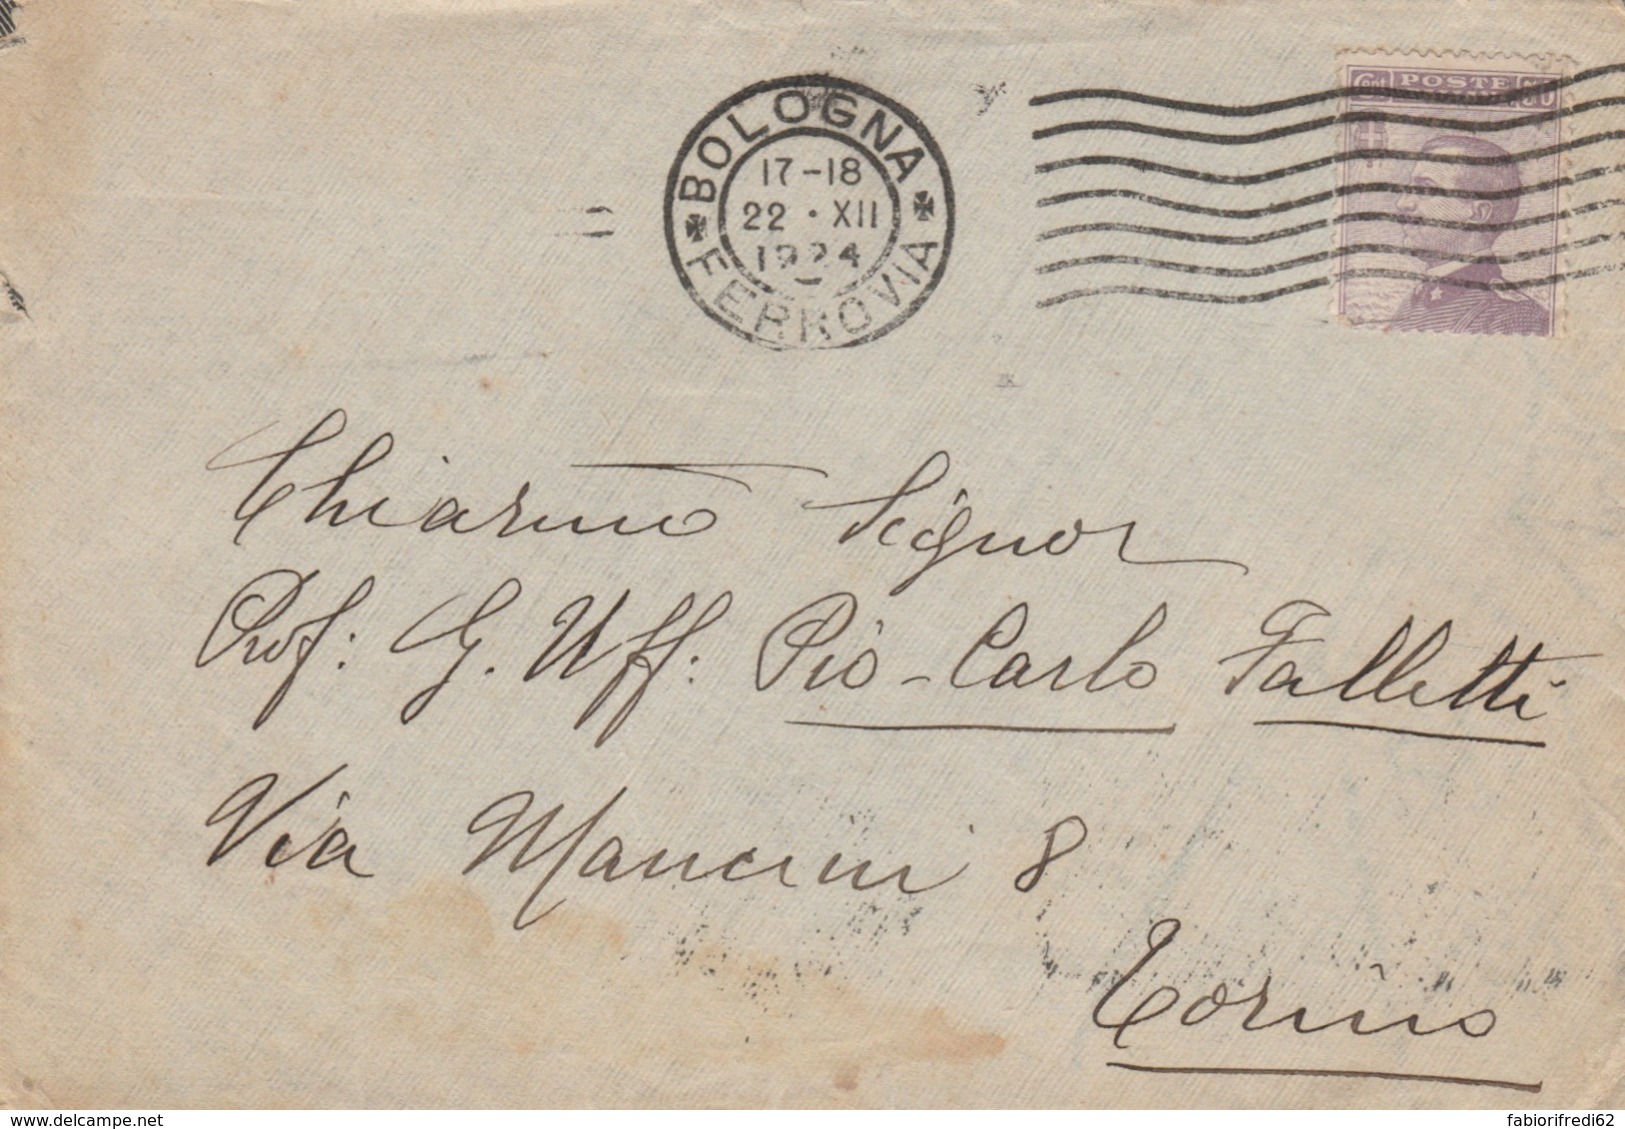 BOLOGNA
17-18
22 · XII
1924
FERROVIA
Cent POSTE 50
Chiarmo Signor
Prof: G. Uff: Pio-Carlo Falletti
Via Mancini 8
Torino
www.delcampe.net
fabiorifredi62